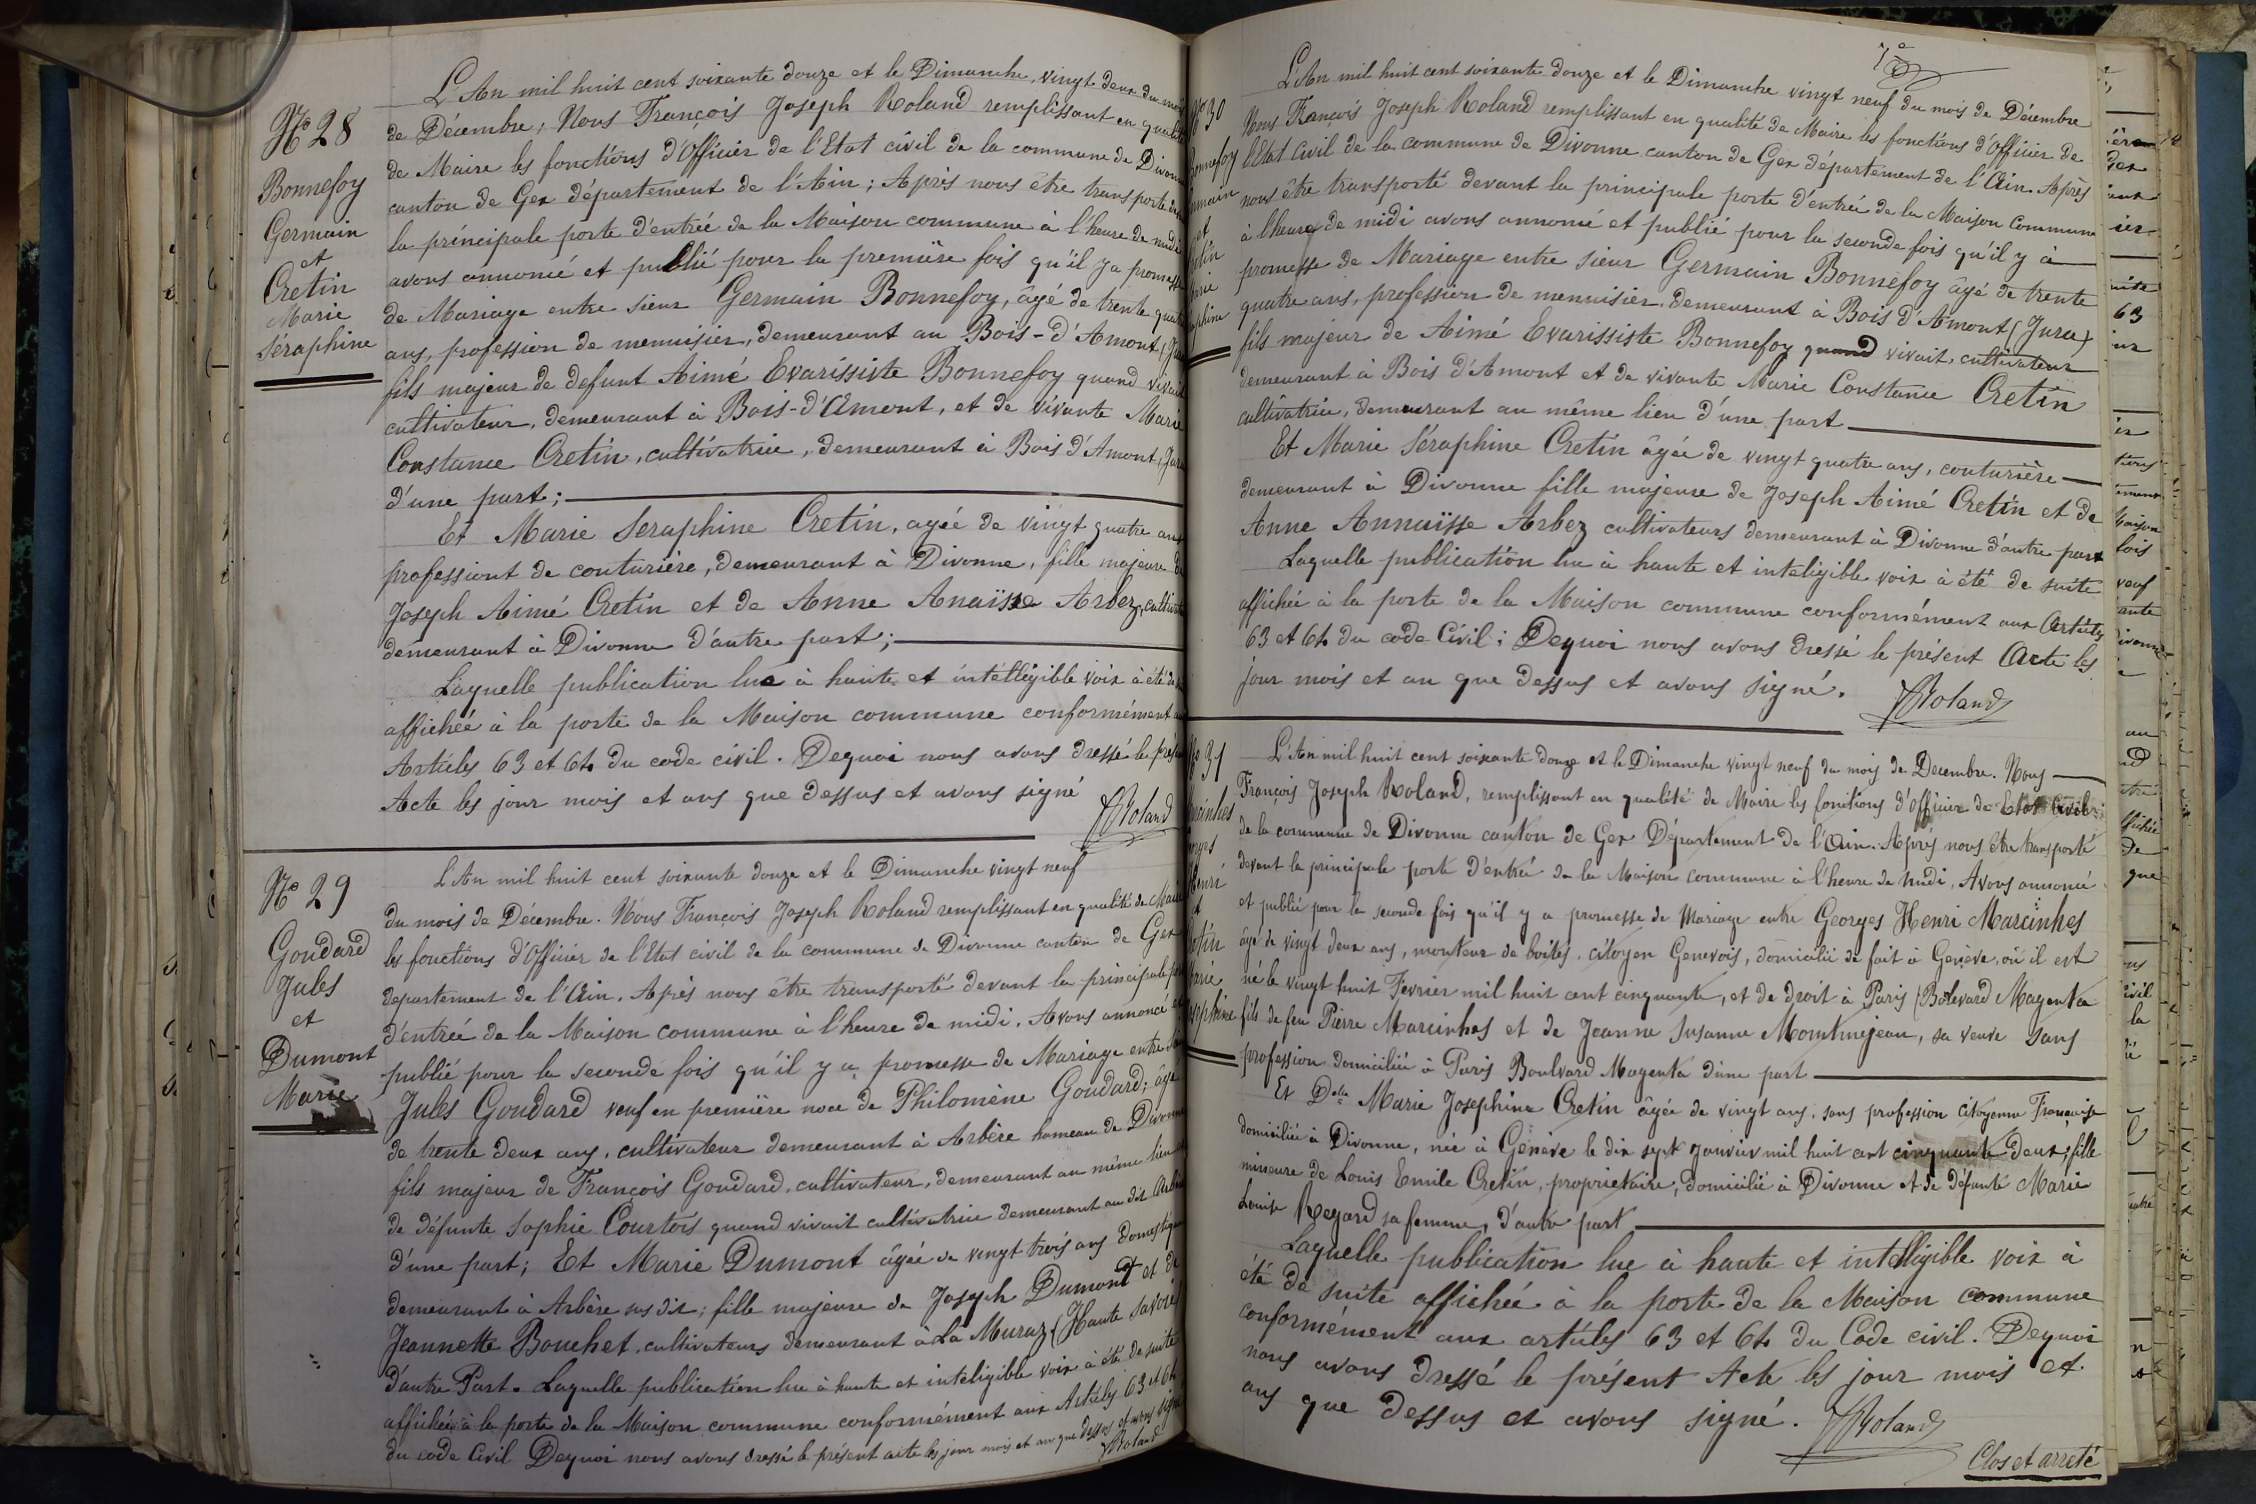 N° 28
Bonnefoy
Germain
et
Cretin
Marie
Séraphine
L'An mil huit cent soixante douze et le Dimanche, vingt deux du mois
de Décembre; Nous François Joseph Roland remplissant en qualité
de Maire les fonctions d'Officier de l'Etat civil de la commune de Divonne
canton de Gex département de l'Ain; Après nous être transporté
la principale porte d'entrée de la Maison commune à l'heure de midi
avons annoncé et publié pour la première fois qu'il y a promesse
de Mariage entre sieur Germain Bonnefoy, âgé de trente quatre
ans, profession de menuisier, demeurant au Bois-d'Amont, (Jura
fils majeur de defunt Aimé Evarissiste Bonnefoy quand vivait
cultivateur, demeurant à Bois-d'Amont, et de vivante Marie
Constance Cretin, cultivatrice, demeurant à Bois d'Amont, (Jura
d'une part;
Et Marie Seraphine Cretin, agée de vingt quatre ans
professiont de couturière, demeurant à Divonne, fille majeure de
Joseph Aimé Cretin et de Anne Anaïsse Arbez,
demeurant à Divonne d'autre part;
Laquelle publication lue à haute et intélligible voix à été de
affichée à la porte de la Maison commune conformément
Articles 63 et 64 du code civil. Dequoi nous avons dressé le présent
Acte les jour mois et ans que dessus et avons signé
Roland
N° 29
Goudard
Jules
et
Dumont
Marie
L'An mil huit cent soixante douze et le Dimanche vingt neuf
du mois de Décembre. Nous François Joseph Roland remplissant en qualité de Maire
les fonctions d'Officier de l'Etat civil de la commune de Divonne canton de Gex
departement de l'Ain. Après nous être transporté devant la principale
d'entrée de la Maison commune à l'heure de midi, Avons annoncé
publié pour la seconde fois qu'il y a promesse de Mariage entre
Jules Goudard veuf en première noce de Philomène Goudard; âgé
de trente deux ans, cultivateur demeurant à Arbère hameau de Divonne
fils majeur de François Goudard, cultivateur, demeurant au même lieu
de défunte Sophie Courtois quand vivait cultivatrice demeurant au dit
d'une part; Et Marie Dumont âgée de vingt trois ans domestique
demeurant à Arbère sus dit; fille majeure de Joseph Dumont et de
Jeannette Bouchet, cultivateurs demeurant à La Muraz (Haute Savoie)
d'autre Part. Laquelle publication lue à haute et inteligible voix à été de suite
affichée à la porte de la Maison commune conformément aux Articles 63 et 64
du code Civil Dequoi nous avons dressé le présent acte les jour mois et an que dessus et avons signé
Roland
7e
N° 30
Bonnefoy
L'An mil huit cent soixante douze et le Dimanche vingt neuf du mois de Décembre
Nous François Joseph Roland remplissant en qualité de Maire les fonctions d'Officier de
l'Etat Civil de la commune de Divonne canton de Gex département de l'Ain. Après
nous être transporté devant la principale porte d'entrée de la Maison Commune
à l'heure de midi avons annoncé et publié pour la seconde fois qu'il y à
promesse de Mariage entre sieur Germain Bonnefoy âgé de trente
quatre ans, profession de menuisier, demeurant à Bois d'Amont (Jura)
fils majeur de Aimé Evarissiste Bonnefoy quand vivait, cultivateur
demeurant à Bois d'Amont et de vivante Marie Constance Cretin
cultivatrice, demeurant au même lieu d'une part
Et Marie Séraphine Cretin âgée de vingt quatre ans, couturière
demeurant à Divonne fille majeure de Joseph Aimé Cretin et de
Anne Annaïsse Arbez cultivateurs demeurant à Divonne d'autre part
Laquelle publication lue à haute et inteligible voix à été de suite
affichée à la porte de la Maison commune conformément aux Articles
63 et 64 du code Civil: Dequoi nous avons dressé le présent Acte les
jour mois et an que dessus et avons signé.
Roland
N° 31
L'An mil huit cent soixante douze et le Dimanche vingt neuf du mois de Decembre. Nous
François Joseph Roland, remplissant en qualité de Maire les fonctions d'Officier de Etat Civil
de la commune de Divonne canton de Gex Département de l'Ain. Après nous être transporté
devant la principale porte d'entrée de la Maison commune à l'heure de midi, Avons annoncé
et publié pour la seconde fois qu'il y a promesse de Mariage entre Georges Henri Marcinhes
âgé de vingt deux ans, monteur de boites, citoyen Genevois, domicilié de fait à Genève, où il est
né le vingt huit Fevrier mil huit cent cinquante, et de droit à Paris (Bolevard Magenta
fils de feu Pierre Marcinhes et de Jeanne Susanne Montmejean, sa veuve sans
profession domiciliée à Paris Boulvard Magenta d'une part
Et Delle Marie Josephine Cretin âgée de vingt ans, sans profession citoyenne Française
domiciliée à Divonne, née à Genève le dix sept Janvier mil huit cent cinquante deux; fille
mineure de Louis Emile Cretin, proprietaire, domicilié à Divonne et de défunte Marie
Louise Regard sa femme, d'autre part
Laquelle publication lue à haute et intelligible voix à
été de suite affichée à la porte de la Maison commune
conformément aux articles 63 et 64 du Code civil. Dequoi
nous avons dressé le présent Acte les jour mois et
ans que dessus et avons signé.
Roland
Clos et arreté